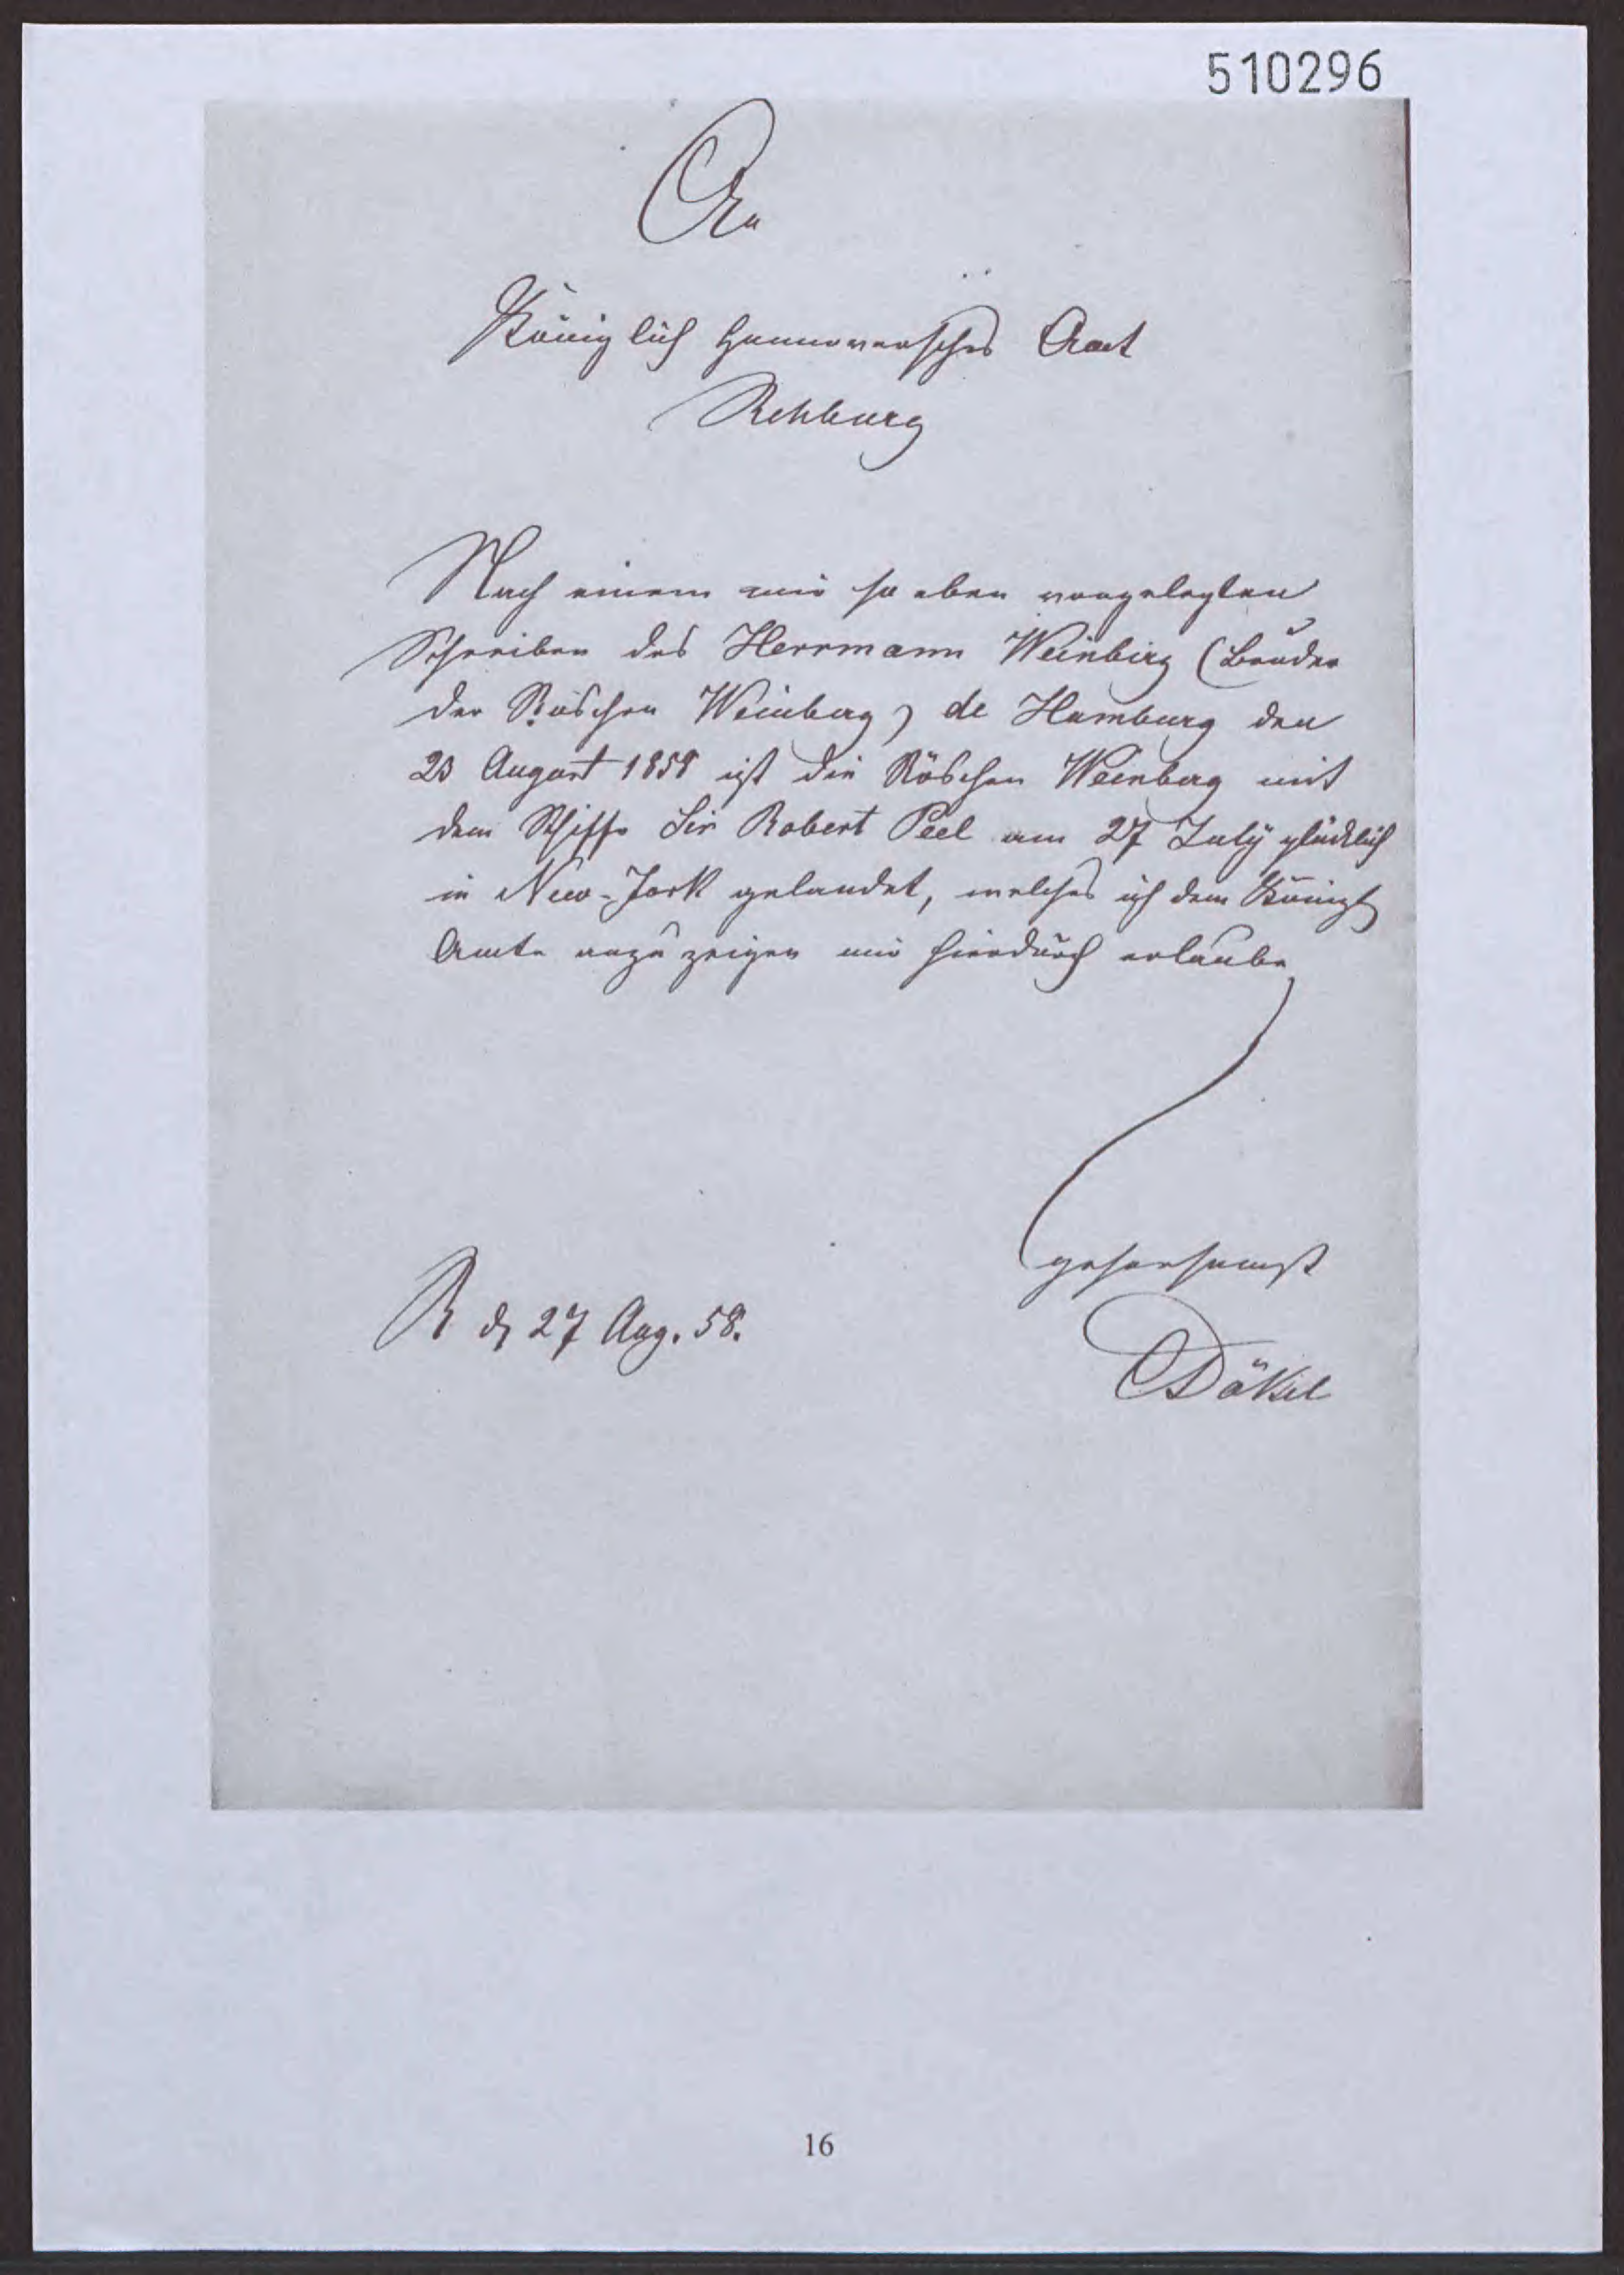 510296
An
Königlich Hannoversches Amt
Rehburg
Nach einem mir so eben vorgelegten
Schreiben des Herrmann Weinberg (Bruder
der Röschen Weinberg) de Hamburg den
23 August 1858 ist die Röschen Weinberg mit
dem Schiffe Sir Robert Peel am 27 July glücklich
in New-Jork gelandet, welches ich dem Königl
Amte anzuzeigen mir hierdurch erlaube
gehorsamst
R d 27 Aug. 58.
Dökel
16